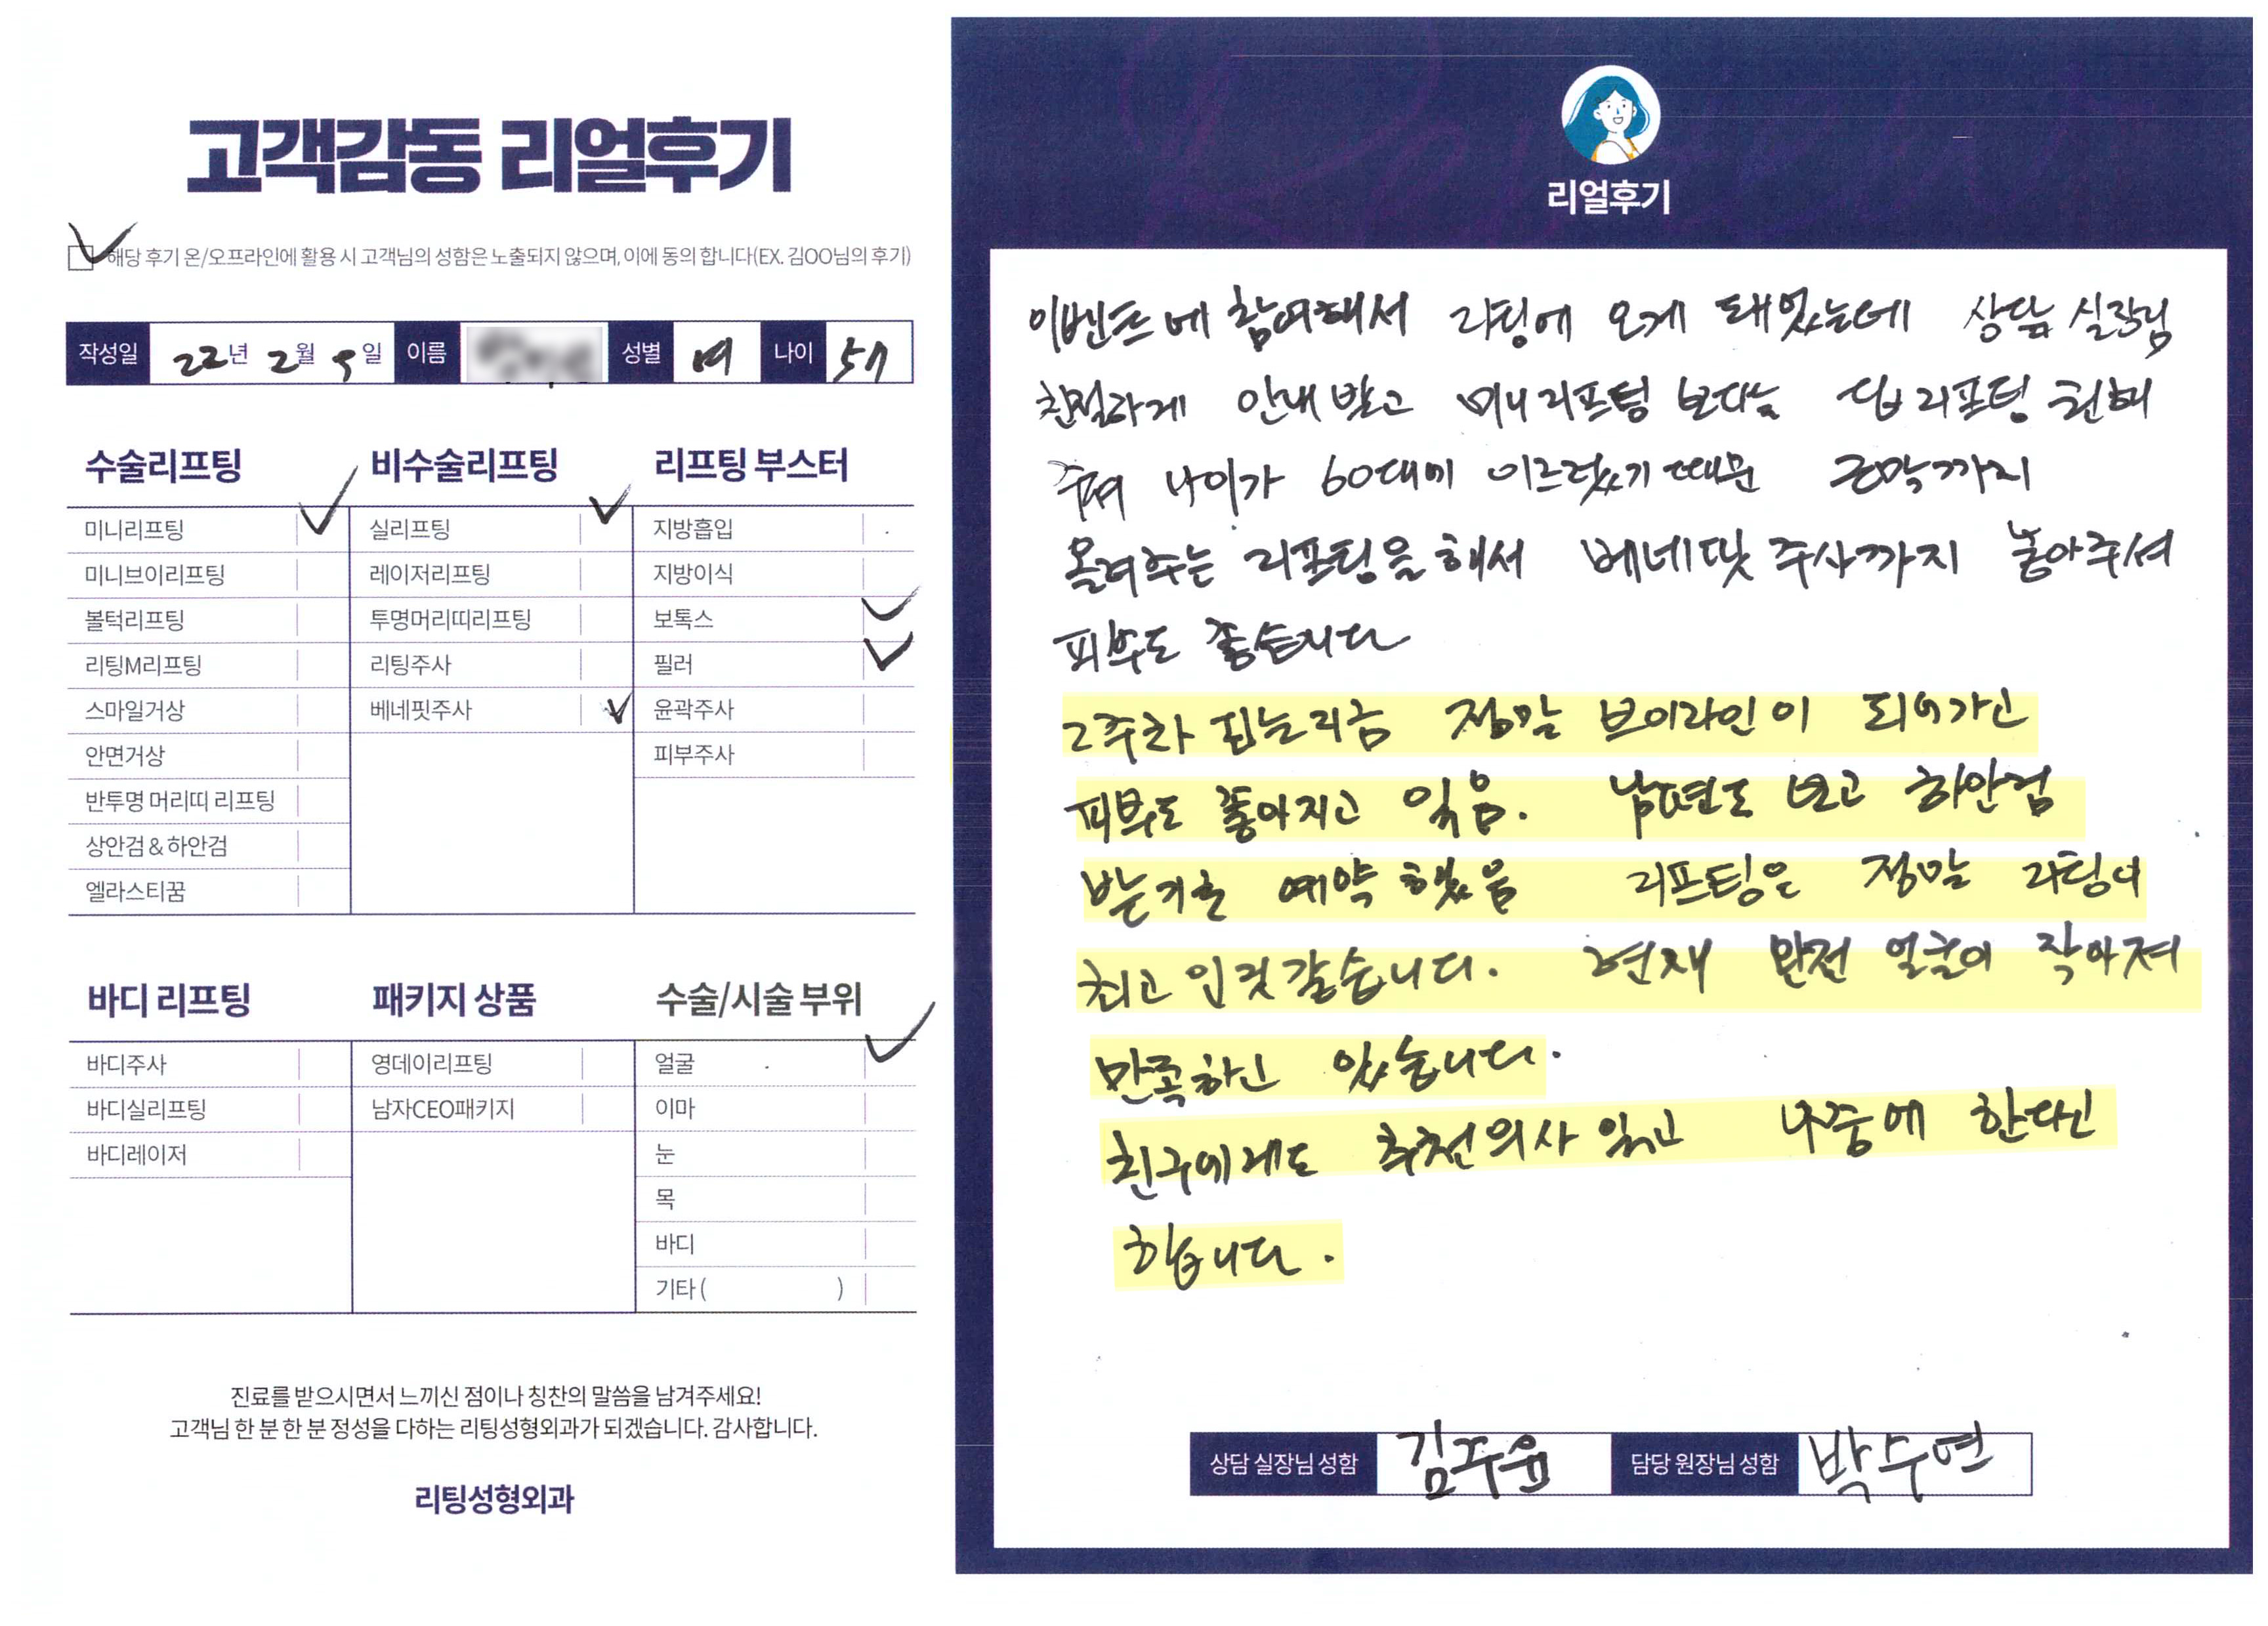 고객감동 리얼후기
해당 후기 온/오프라인에 활용 시 고객님의 성함은 노출되지 않으며, 이에 동의 합니다(EX. 김OO님의 후기)
작성일 22년 2월 9일 이름 성별 여 나이 57
수술리프팅
미니리프팅
미니브이리프팅
볼턱리프팅
리팅M리프팅
스마일거상
안면거상
반투명 머리띠 리프팅
상안검&하안검
엘라스티꿈
비수술리프팅
실리프팅
레이저리프팅
투명머리띠리프팅
리팅주사
베네핏주사
리프팅 부스터
지방흡입
지방이식
보톡스
필러
윤곽주사
피부주사
바디 리프팅
바디주사
바디실리프팅
바디레이저
패키지 상품
영데이리프팅
남자CEO패키지
수술/시술 부위
얼굴
이마
눈
목
바디
기타( )
진료를 받으시면서 느끼신 점이나 칭찬의 말씀을 남겨주세요!
고객님 한 분 한 분 정성을 다하는 리팅성형외과가 되겠습니다. 감사합니다.
리팅성형외과
리얼후기
이벤트에 참여해서 리팅에 오게 돼었는데 상담 실장님
친절하게 안내 받고 미니리프팅 보다는 딥리프팅 권해
주셔 나이가 60대에 이르렀기 때문 근막까지
올려주는 리프팅을 해서 베네핏 주사까지 놓아주셔
피부도 좋습니다
2주차 정말 브이라인이 되어가고
피부도 좋아지고 있음. 남편도 보고 하안검
받기로 예약했음 리프팅은 정말 리팅이
최고인것같습니다. 현재 완전 얼굴이 작아져
만족하고 있습니다.
친구에게도 추천의사 있고 나중에 한다고
합니다.
상담 실장님 성함 김주윤 담당 원장님 성함 박수연